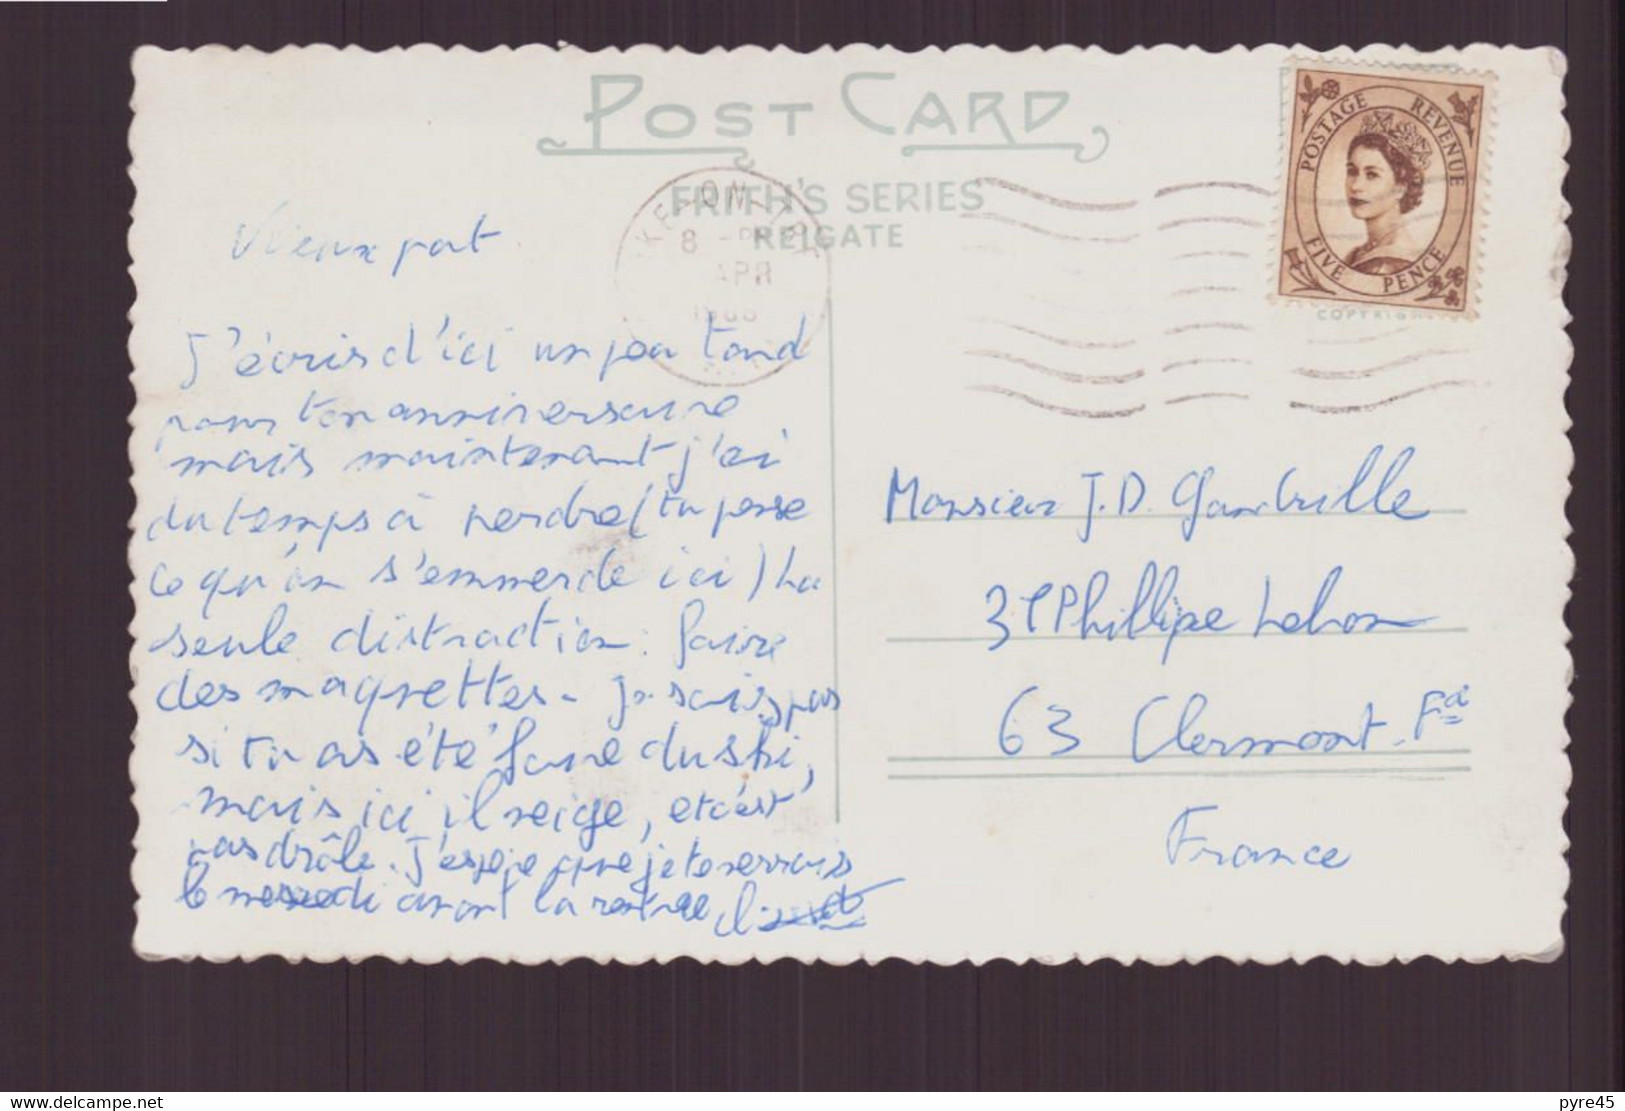 POST CARD
FRITH'S SERIES
REIGATE
8 - PM
APR
POSTAGE REVENUE
FIVE PENCE
Vieux pot
J'écris d'ici un peu tard
pour ton anniversaire
mais maintenant j'ai
du temps à perdre (tu penses
ce qu'on s'emmerde ici) La
seule distraction : faire
des maquettes - Je sais pas
si tu as été faire du ski,
mais ici il neige, et c'est
pas drôle. J'espère que je te verrais
le mercredi avant la rentrée
Monsieur J.D. Gambrille
3 Phillipe Lebon
63 Clermont-Fd
France
pyre45
delcampe.net